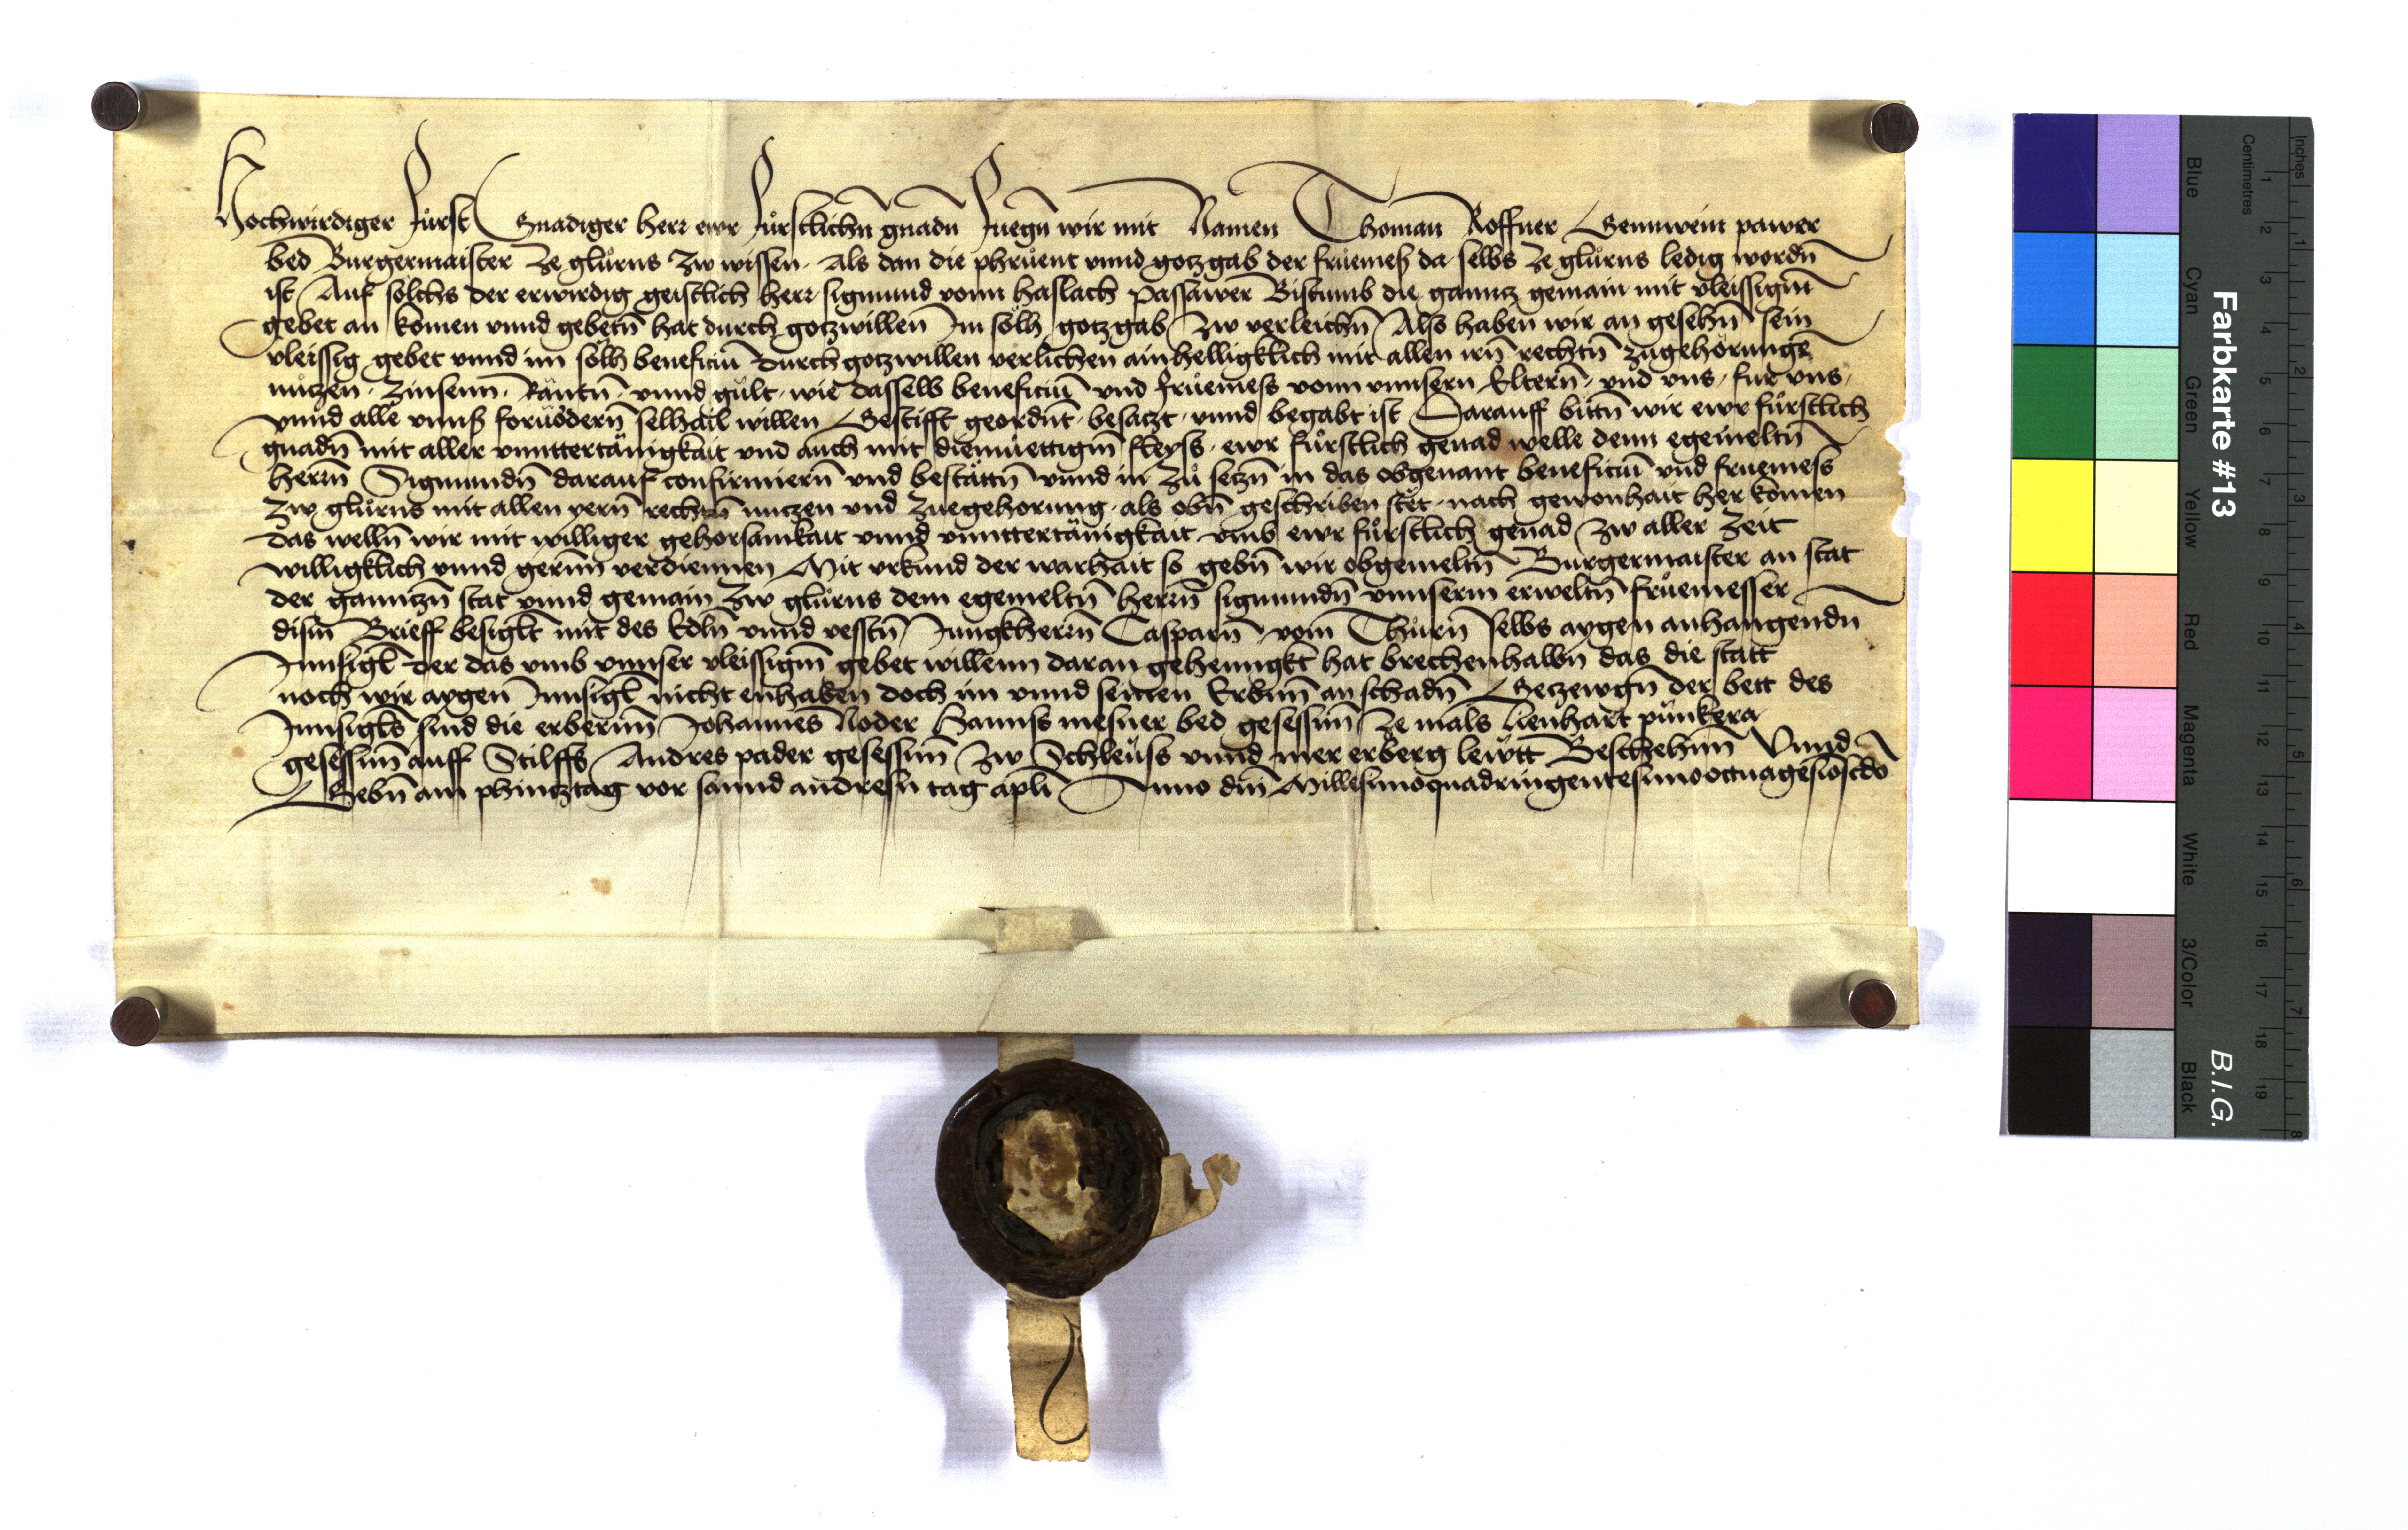 Hochwirdiger Fürst Gnadiger herr ewr fürstlichn̄ gnadn̄ Fuegn̄ wir mit Namen Thoman̄ Roffner Gennwein pawer
bed Burgermaister ze glůrns zw wissen · Als dan die phrůent vnnd gotzgab der frůemeß da selbs ze glůrns ledig wordn̄
ist Auf solchs der erwirdig geistlich herr sigmund vonn haslach Passawer Bistumb die ganntz gemain mit vleissigm̄
gebet an komen vnnd gebetn̄ hat durch gotzwillen Im sölh gotzgab zw verleichn̄ Also haben wir an gesehn̄ sein
vleissig gebet vnnd im sölh beneficiū durch gotzwillen verlichen ainhelligklich mit allen irn̄ rechtn̄ zůgehörunge
nützen · Zinsenn · Räntn̄ · vnnd gült · wie dasselb beneficiū vnd frůemess vonn vnnsern Eltern̄ · vnd vns · fur vns ·
vnnd alle vnnß foruödern̄ selhail willen Gestifft geordn̄t · besatzt · vnnd begabt ist Darauff bittn̄ wir ewr fůrstlich
gnadn̄ mit aller vnnttertänigkait vnd auch mit diemuettigm̄ fleyss · ewr fůrstlich genad welle denn egemeltn̄
herrn̄ Sigmundn̄ darauf confirmiern̄ vnd bestättn̄ vnnd in zů setzn̄ in das obgenant beneficiū vnd fruemess
zw glůrns mit allen yern̄ rechtn̄ nutzen vnd zuegehorung · als obn̄ geschriben stet · nach gewonhait her komen
das welln̄ wir mit williger gehorsamkait vnnd vnnttertänigkait vmb ewr fůrstlich genad zw aller zeit
willigklich vnnd gernn̄ verdiennen Mit vrkund der warhait so gebn̄ wir obgemeltn̄ Burgermaister an stat
der ganntzn̄ stat vnnd gemain zw glůrns dem egemeltn̄ herrn̄ sigmundn̄ vnnserm erweltn̄ frůemesser
disn̄ Brieff besiglt mit des Edln̄ vnnd vesstn̄ Jungkherrn̄ Casparn̄ vom̄ Thurn̄ selbs aygen anhangendn̄
Innsigl̄ der das vmb vnnser vleissigm̄ gebet willenn daran gehenngkt hat brechenhalbn̄ das die statt
noch wir aygen Innsigl̄ nicht enhaben doch im vnnd seinen Erbnn̄ an schadn̄ Getzewgn̄ der bett des
Innsigls̄ sind die erbernn̄ Johannes Noder Hannss mesner bed gesessnn̄ ze mals lienhart pünkera
gesessnn̄ auff Stilffs Andres pader gesessnn̄ zw Schleüss vnnd mer erberg lewtt Beschehnn̄ Vnnd
Gebn̄ am phintztag vor sannd andresn̄ tag apl̄i Anno dn̄i Millesimoquadringentesimooctuagesio scdo
Farbkarte #13
B.I.G.
Inches
Centimetres
Blue
Cyan
Green
Yellow
Red
Magenta
White
3/Color
Black
1 2 3 4 5 6 7 8 9 10 11 12 13 14 15 16 17 18 19
1 2 3 4 5 6 7 8